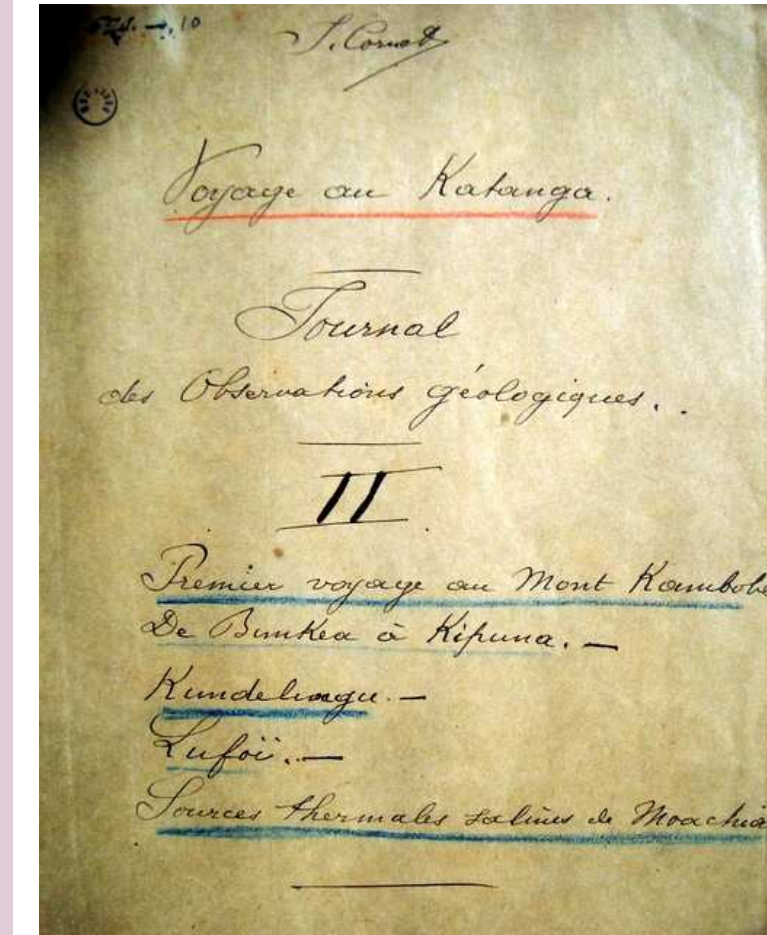 J. Cornet
Voyage au Katanga.
Journal
des Observations géologiques.
II
Premier voyage au Mont Kambobe
De Bunkea à Kipuna. —
Kundelungu. —
Lufoï. —
Sources thermales salines de Moachia